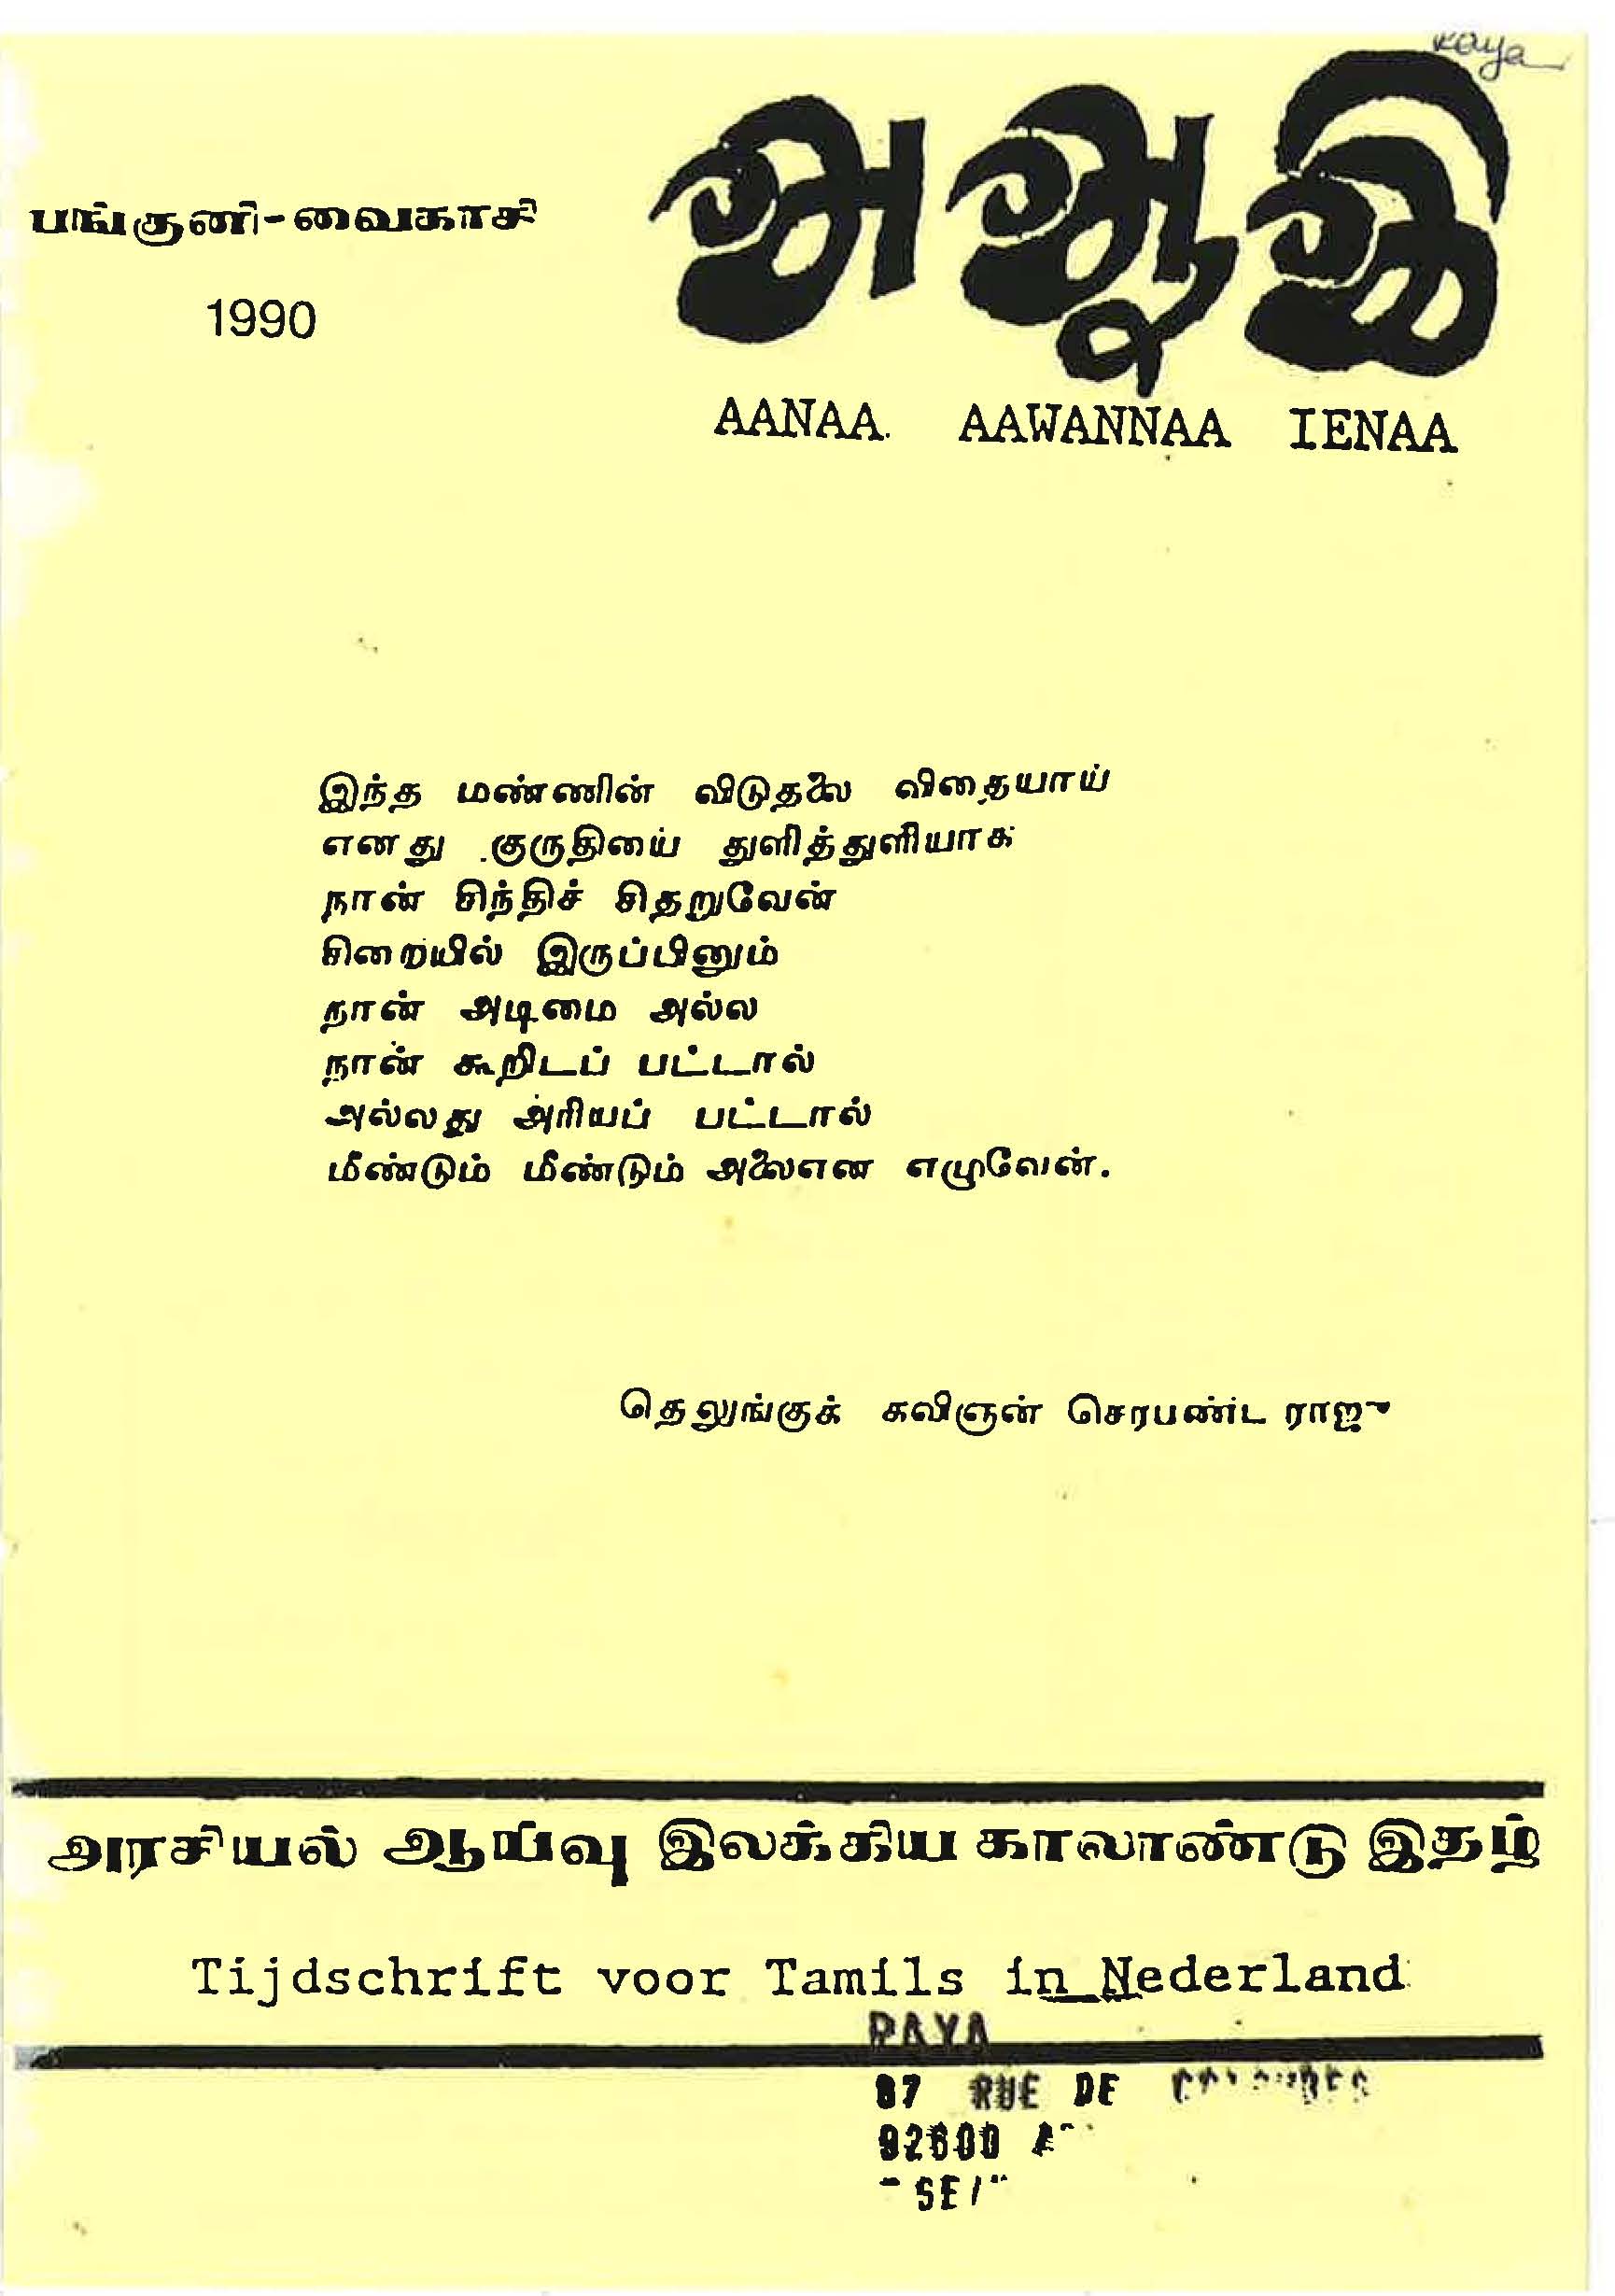 Raya
அ ஆ இ
பங்குனி-வைகாசி
1990
AANAA. AAWANNAA IENAA
இந்த மண்ணின் விடுதலை விதையாய்
எனது குருதியை துளித்துளியாக
நான் சிந்திச் சிதறுவேன்
சிறையில் இருப்பினும்
நான் அடிமை அல்ல
நான் கூறிடப் பட்டால்
அல்லது அரியப் பட்டால்
மீண்டும் மீண்டும் அலைஎன எழுவேன்.
தெலுங்குக் கவிஞன் செரபண்ட ராஜு
அரசியல் ஆய்வு இலக்கிய காலாண்டு இதழ்
Tijdschrift voor Tamils in Nederland
RAYA
87 RUE DE
92600